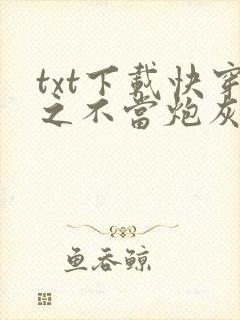 txt下載快穿
之不當炮灰
鱼吞鲸